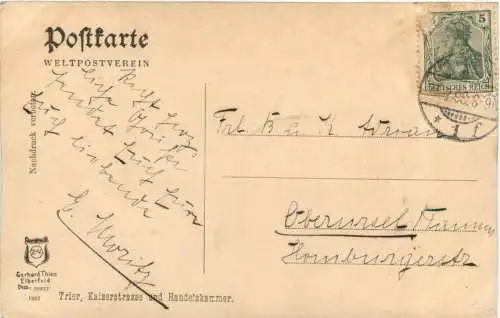 Postkarte
WELTPOSTVEREIN
Nachdruck verboten
5
DEUTSCHES REICH
* 1 f
Recht herz-
liche Grüße
sendet Euch
G. Moritz
Frl. B u. K.
Oberursel Taunus
Homburgerstr
Gerhard Thien
Elberfeld
1907
Trier, Kaiserstrasse und Handelskammer.